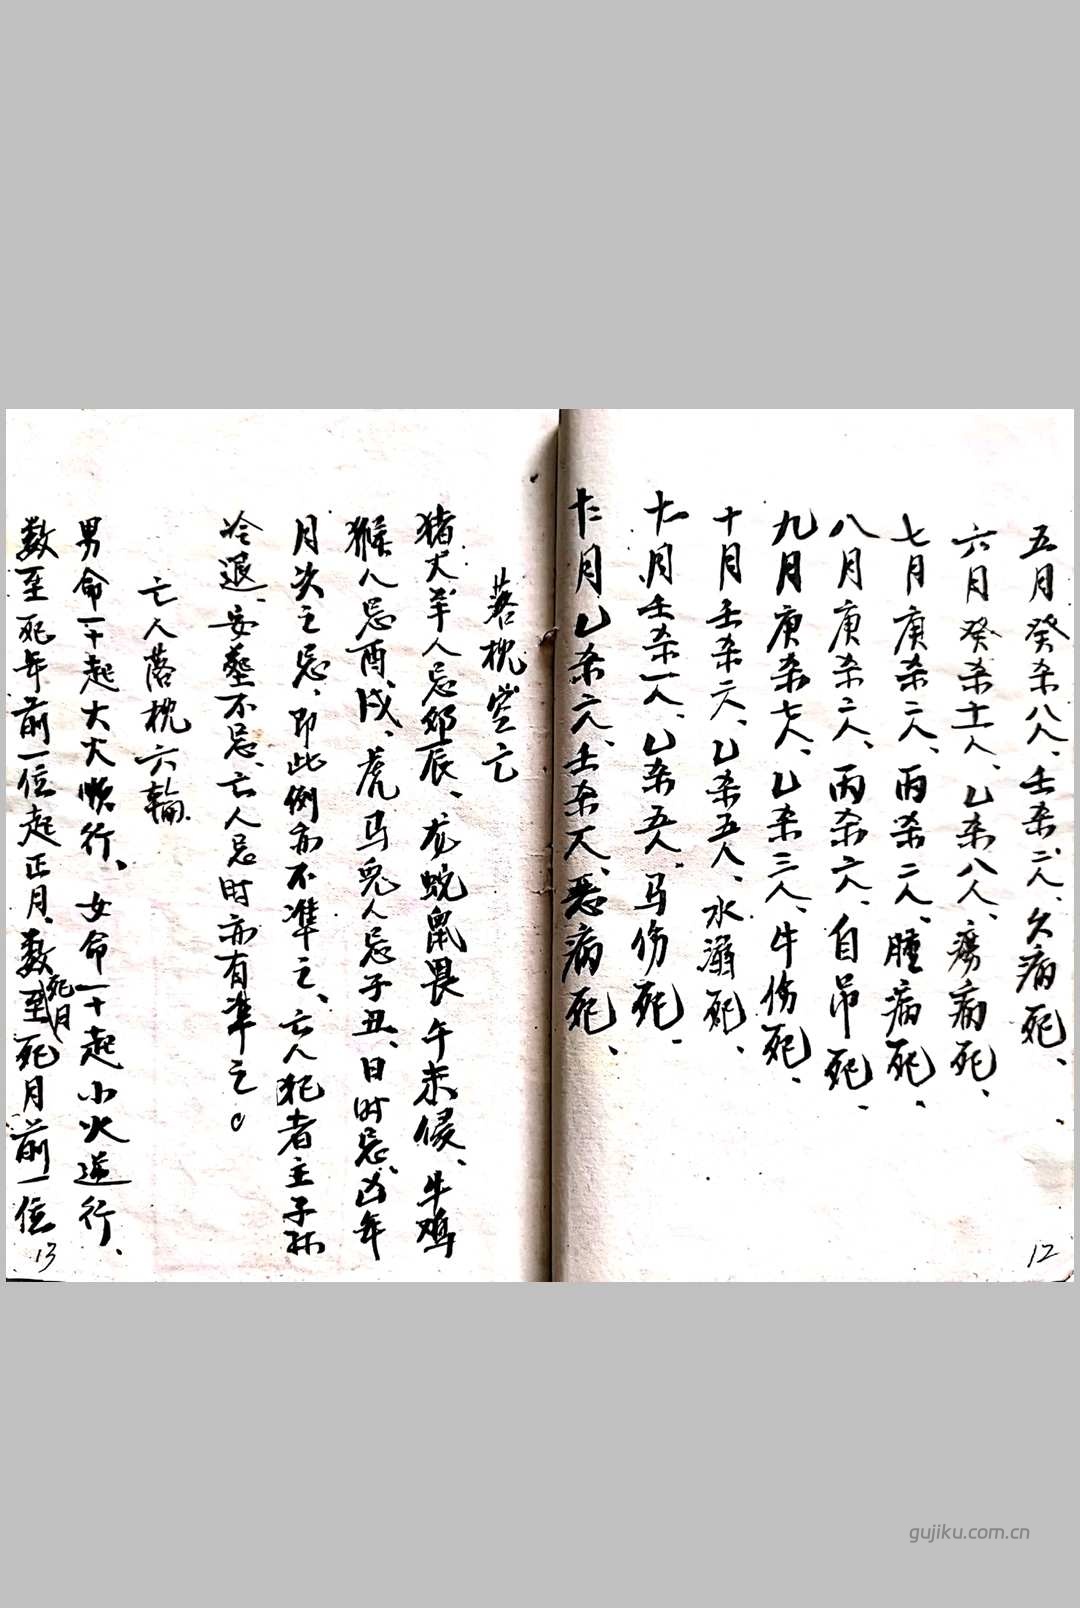 五月癸杀八人、壬杀二人、久病死、
六月癸杀十一人、乙杀八人、痨病死、
七月庚杀二人、丙杀二人、腫病死、
八月庚杀二人、丙杀六人、自吊死、
九月庚杀七人、乙杀三人、牛伤死、
十月壬杀六人、乙杀五人、水溺死、
十一月壬杀一人、乙杀五人、马伤死、
十二月乙杀六人、壬杀一人、恶病死、
12
落枕空亡
猪犬羊人忌卯辰、龙蛇鼠畏午未侵、牛鸡
猴人忌酉戌、虎马兔人忌子丑、日时忌、凶年
月次之忌、即此例亦不準之、亡人犯者主子孙
冷退、安葬不忌、亡人忌时亦有準之。
亡人落枕六輪
男命一十起大火順行、女命一十起小火逆行、
数至死年前一位起正月、数至死月死月前一位
13
gujiku.com.cn